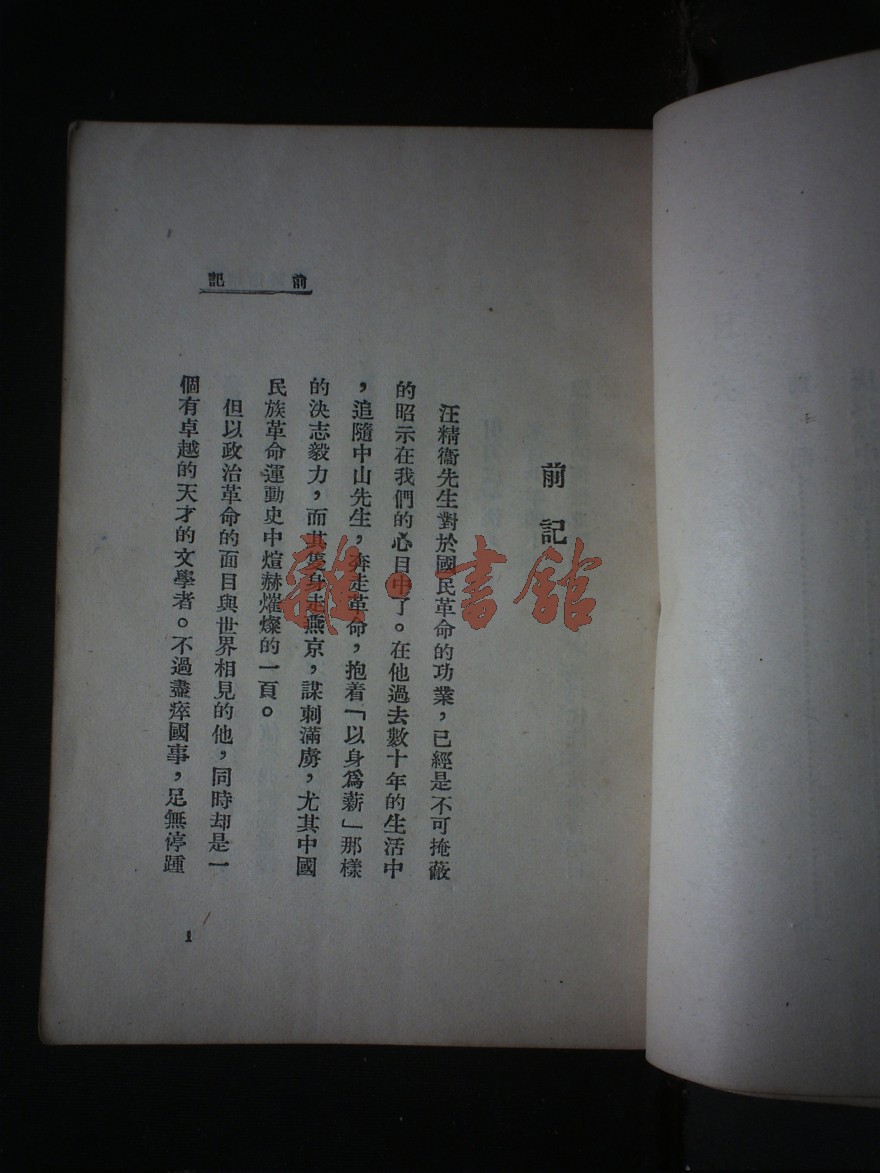 前記
前記
汪精衞先生對於國民革命的功業，已經是不可掩蔽
的昭示在我們的心目中了。在他過去數十年的生活中
，追隨中山先生，奔走革命，抱着「以身爲薪」那樣
的決志毅力，而其隻身走燕京，謀刺滿虜，尤其中國
民族革命運動史中煊赫燿燦的一頁。
但以政治革命的面目與世界相見的他，同時却是一
個有卓越的天才的文學者。不過盡瘁國事，足無停踵
1
雜·書館